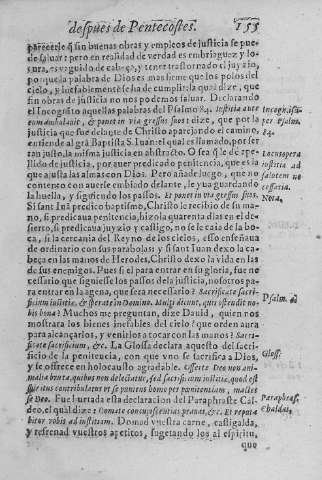 despues de Pentecostes. 155
parecerle q̃ sin buenas obras y empleos de justicia se pue-
de saluar: pero en realidad de verdad es embriaguez y lo-
sura, es vaguido de cabeça, y tener trastornado el juyzio,
porque la palabra de Dios es mas firme que los polos del
cielo, y infaliblemente se ha de cumplir: la qual dize, que
sin obras de justicia no nos podemos saluar. Declarando
el Incognito aquellas palabras del Psalmo 84. Iustitia ante
eum ambulabit, & ponet in via gressus suos: dize, que por la
justicia que fue delante de Christo aparejando el camino,
entiende al grã Baptista S. Iuan: el qual es llamado, por ser
tan justo, la misma justicia en abstracto. O sea q̃ le de ape-
llido de justicia, por auer predicado penitencia, que es la
que ajusta las almas con Dios. Pero añade luego, que no
contento con auerle embiado delante, le yua guardando
la huella, y siguiendo los passos. Et ponet in via gressus suos.
Si san Iuã predico baptismo, Christo le recibio de su ma-
no, si predicaua penitencia, hizola quarenta dias en el de-
sierto, si predicaua juyzio y castigo, no se le caia de la bo-
ca, si la cercania del Reyno de los cielos, esso enseñaua
de ordinario con sus parabolas: y si san Iuan dexo la ca-
beça en las manos de Herodes, Christo dexo la vida en las
de sus enemigos. Pues si el para entrar en su gloria, fue ne-
cessario que siguiesse los passos de la justicia, nosotros pa-
ra entrar en la agena, que sera necessario? Sacrificate sacri-
ficium iustitiæ, & sperate in Domino. Multi dicunt, quis ostendit no-
bis bona? Muchos me preguntan, dize Dauid, quien nos
mostrara los bienes inefables del cielo? que orden aura
para alcançarlos, y venirlos a tocar con las manos? Sacri-
ficate sacrificium, &c. La Glossa declara aquesto del sacri-
ficio de la penitencia, con que vno se sacrifica a Dios,
y se ofrece en holocausto agradable. Offerte Deo non ani-
malia bruta, quibus non delectatur, sed sacrificium iustitiæ, quod est
per penitentiam, malles
se Deo. Fue hurtada esta declaracion del Paraphraste Cal-
deo, el qual dize: Domate concupiscentias prauas, &c. Et reputa
bitur vobis ad iustitiam. Domad vuestra carne, castigalda,
y refrenad vuestros apetitos, sugetando los al espiritu,
que
Incognit.
per Psalm.
84.
iustitia ad
salutem ne
cessaria.
Nota,
Psalm. 4
Gloss.
Paraphras.
Chaldai.